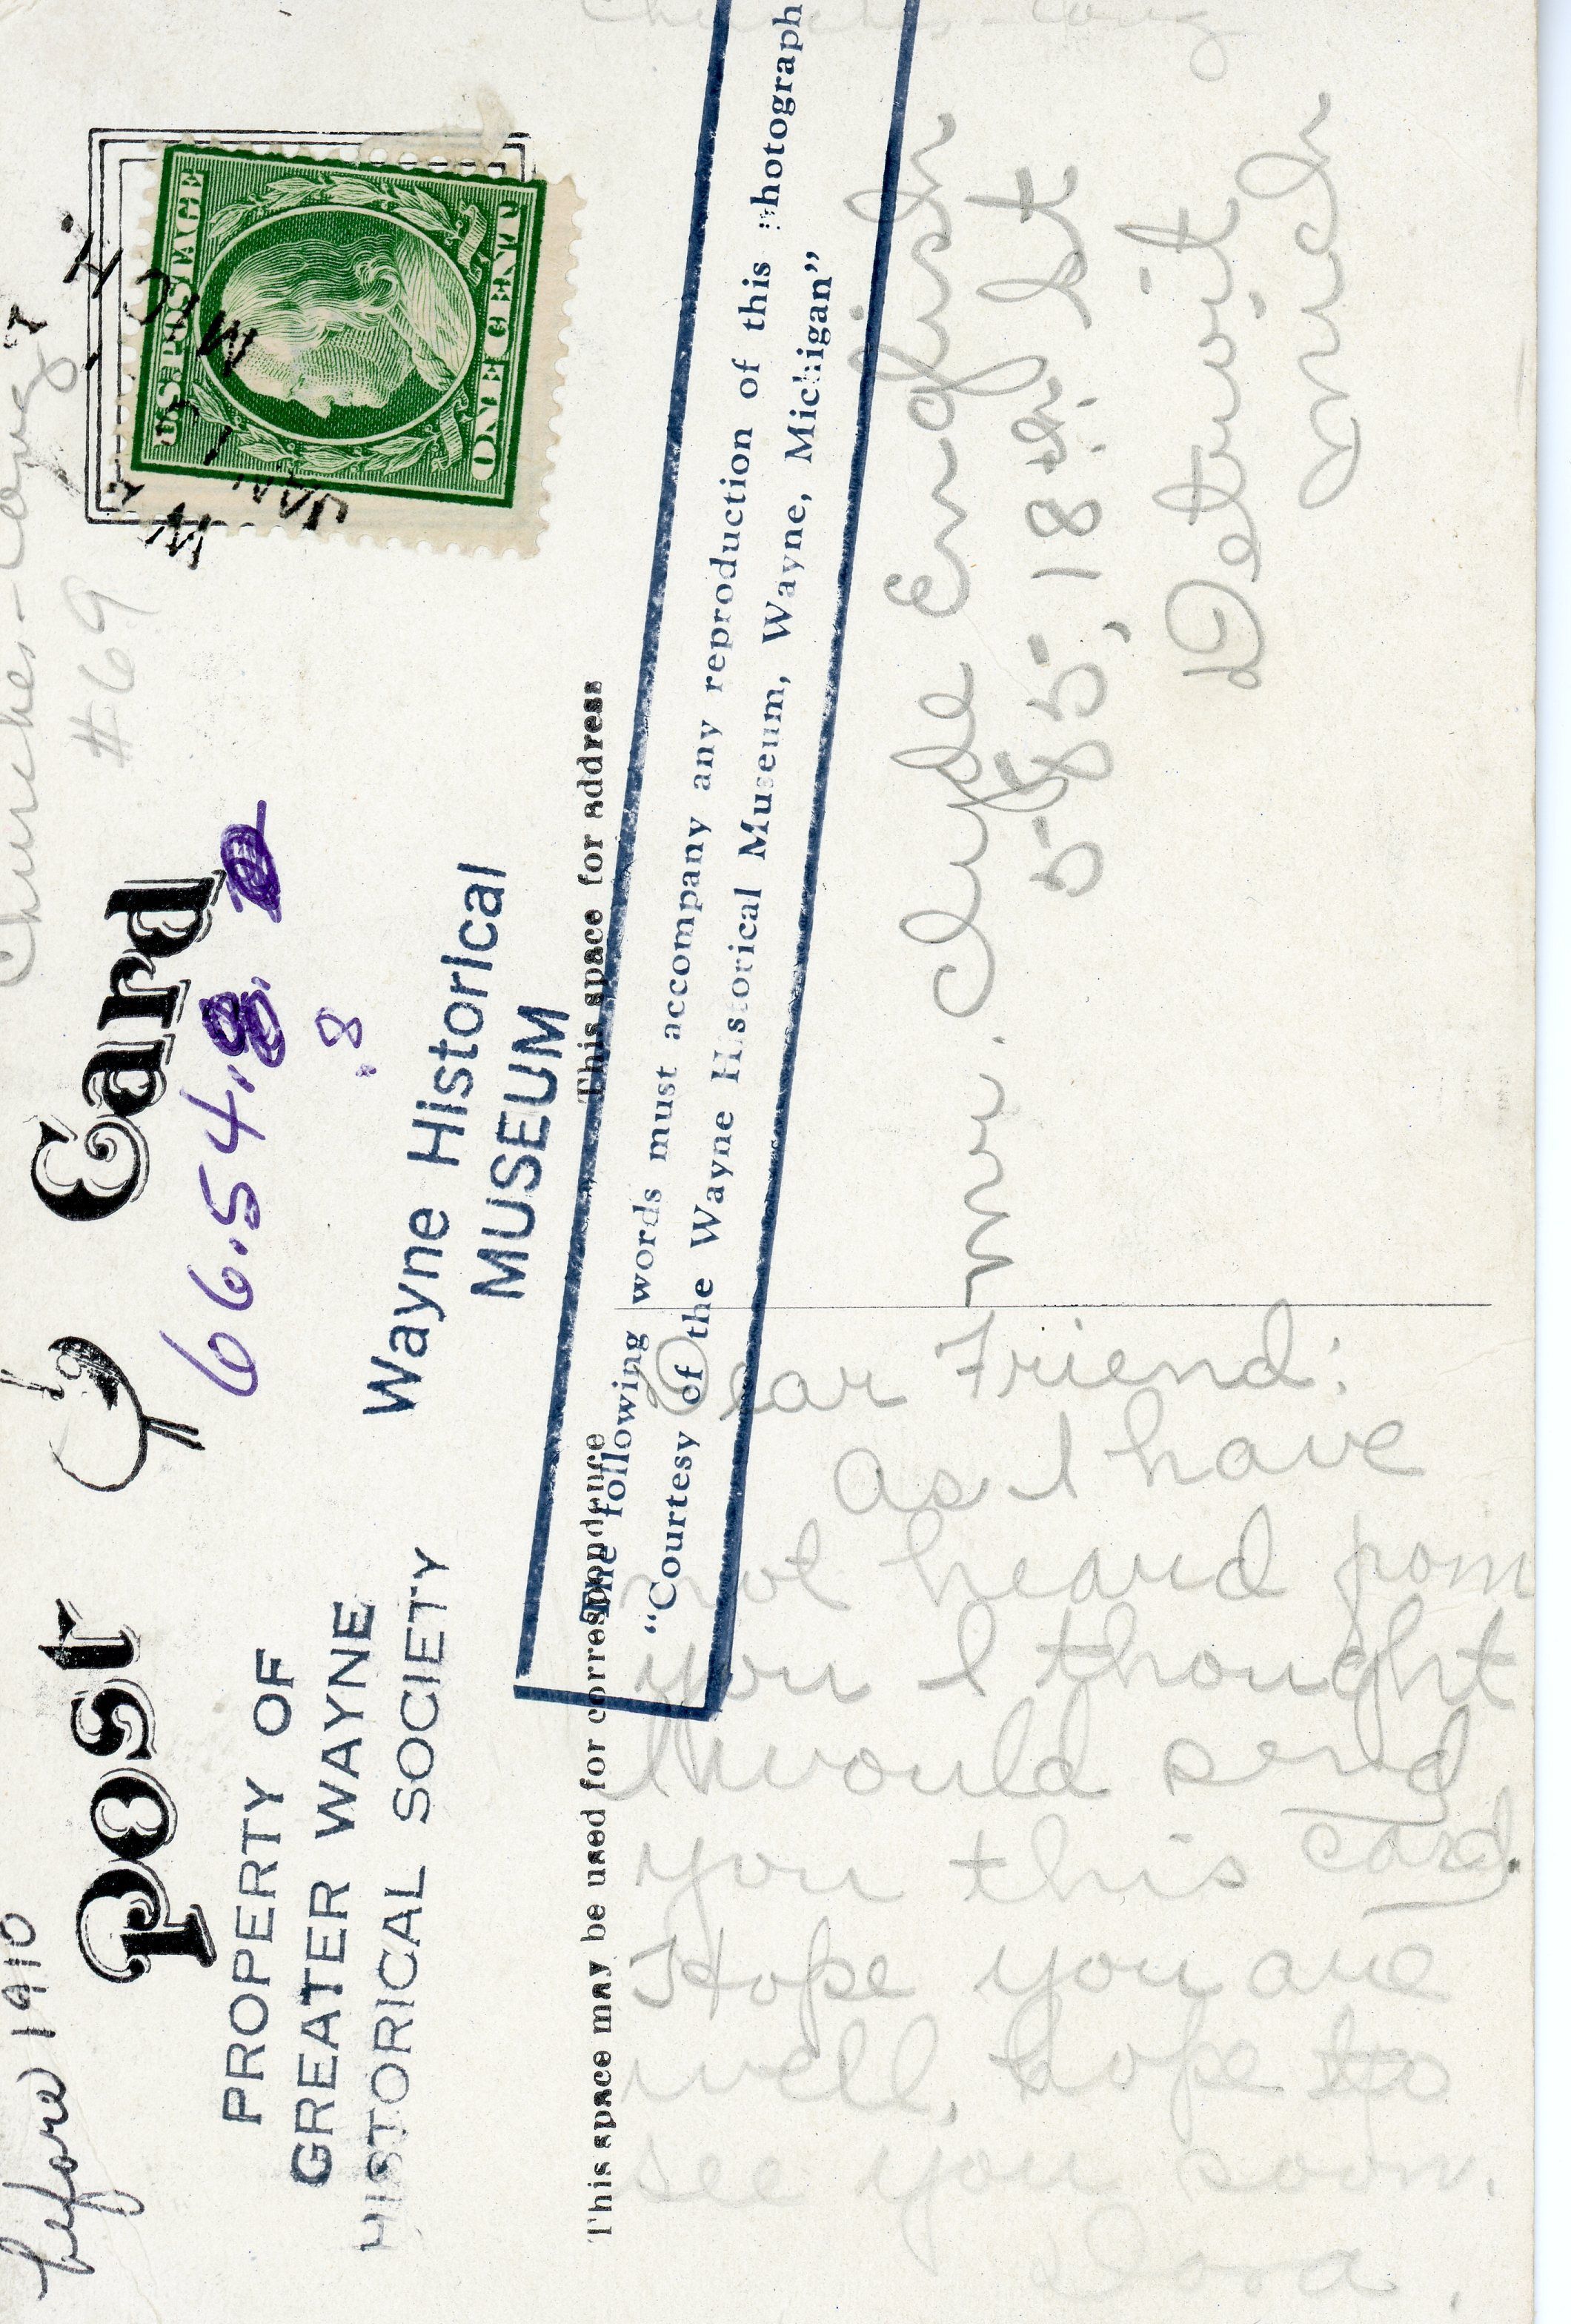 before 1910
Churches - Cong'l
#69
Post Card
66.54.8
.8
PROPERTY OF
GREATER WAYNE
HISTORICAL SOCIETY
Wayne Historical
MUSEUM
U.S. POSTAGE
ONE CENT
MICH.
JAN
This space may be used for correspondence
This space for address
The following words must accompany any reproduction of this photograph
"Courtesy of the Wayne Historical Museum, Wayne, Michigan"
Mr. Clyde English
585, 18th St
Detroit
Mich
Dear Friend:
As I have
not heard from
you I thought
I would send
you this card.
Hope you are
well, hope to
see you soon.
Dora.
Churches - Cong